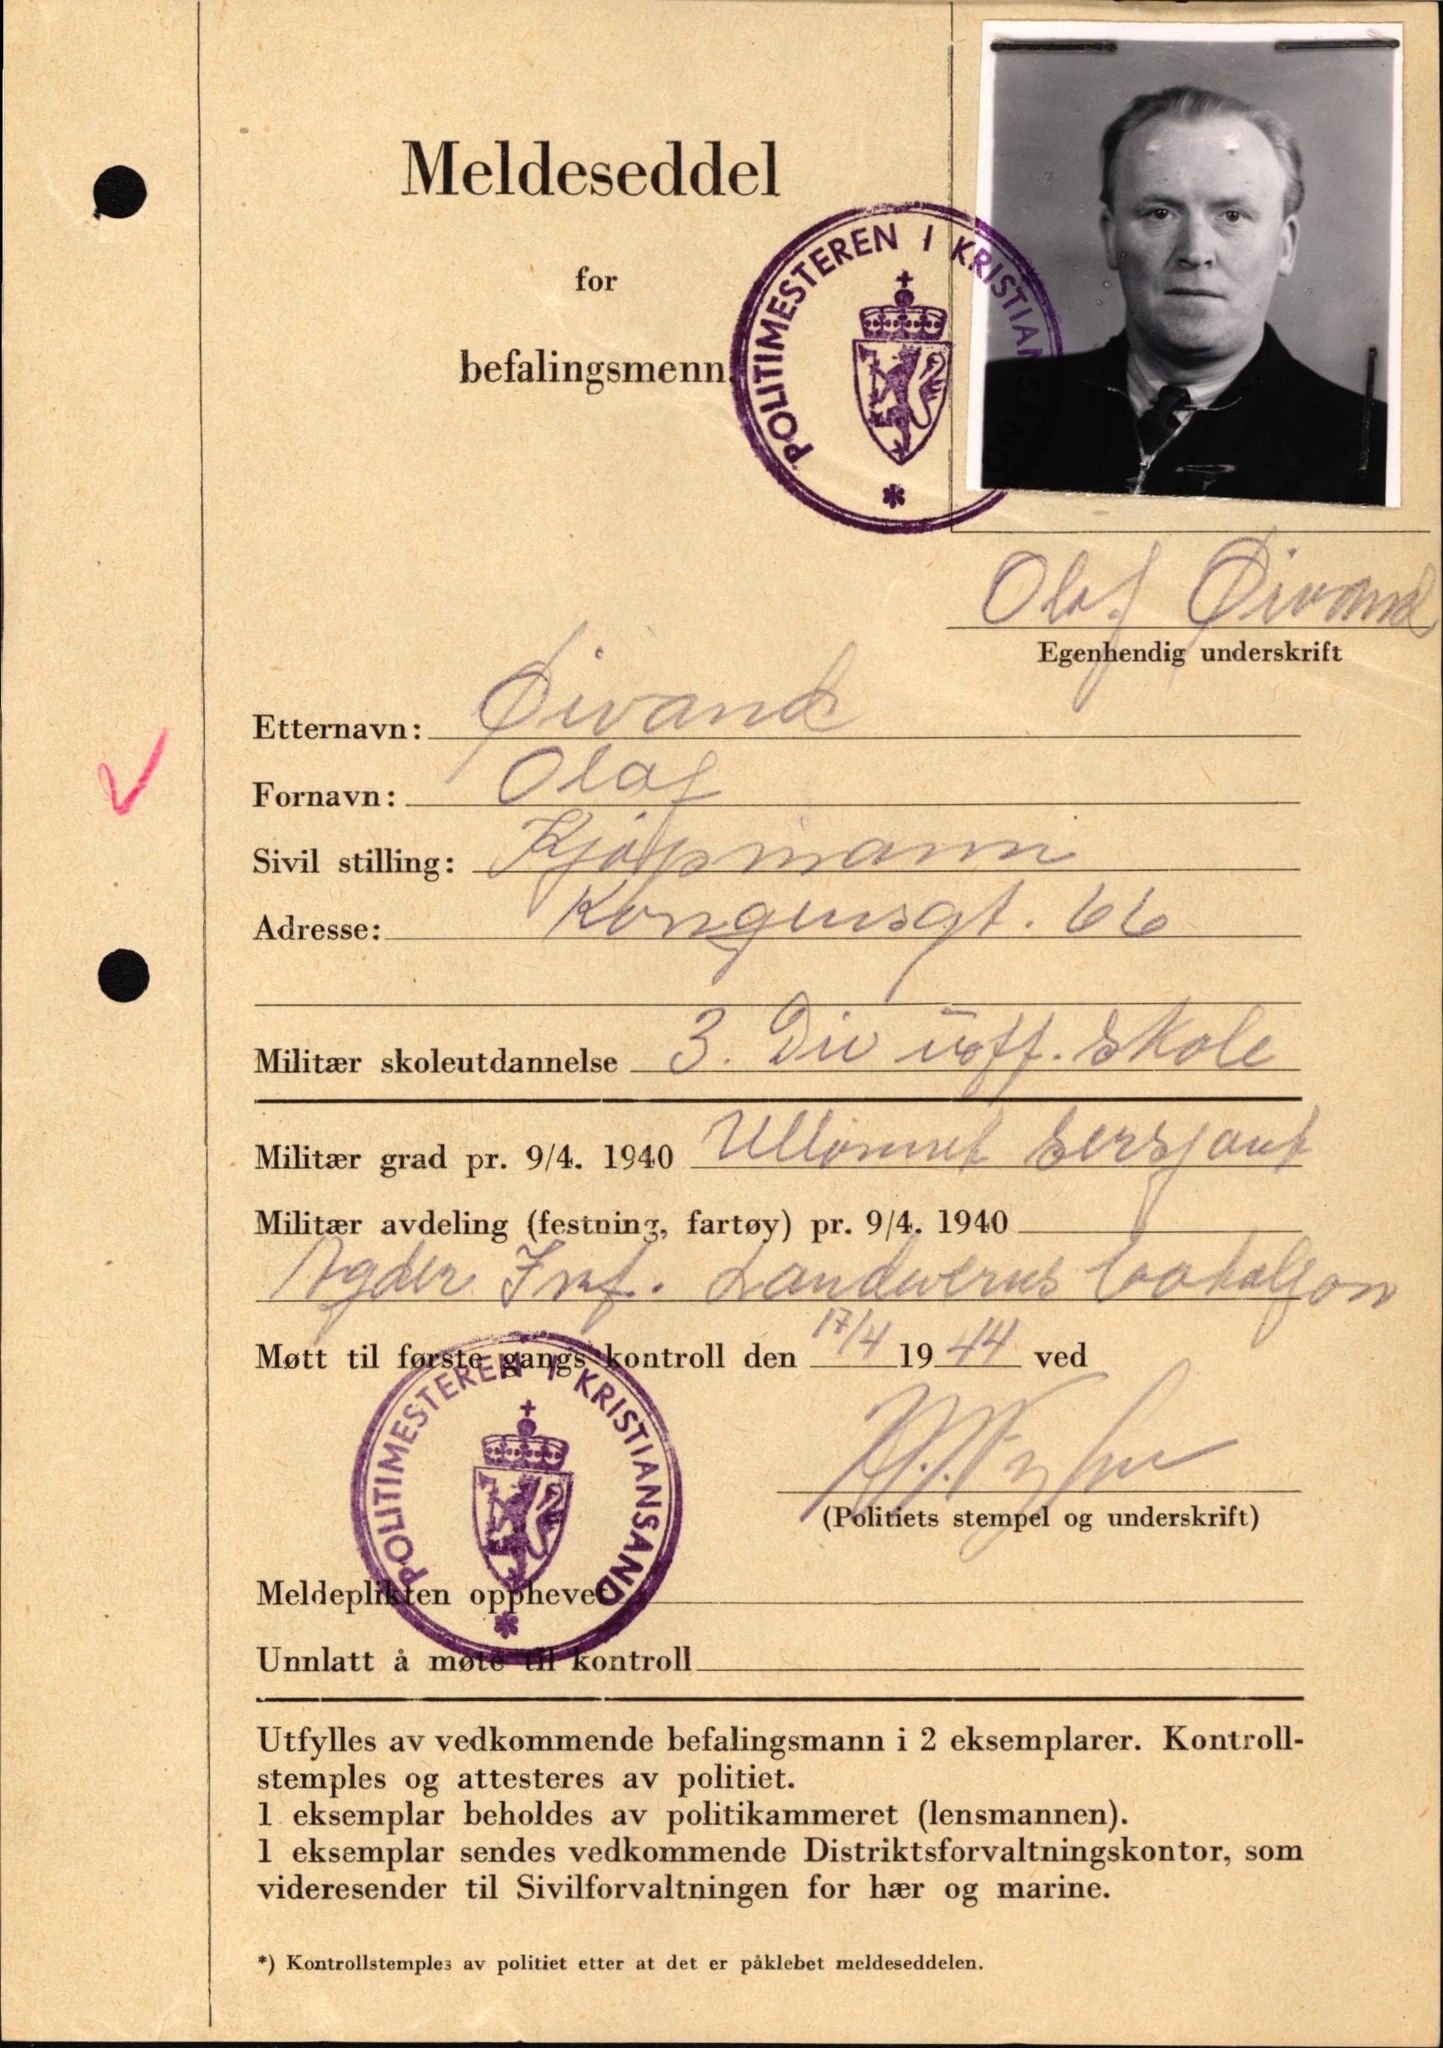 Meldeseddel
for
befalingsmenn
POLITIMESTEREN I KRISTIANSAND
Olaf Øivand
Egenhendig underskrift
Etternavn: Øivand
Fornavn: Olaf
Sivil stilling: Kjøpmann
Adresse: Kongensgt. 66
Militær skoleutdannelse 3. Div uoff. skole
Militær grad pr. 9/4. 1940 Utlønnet sersjant
Militær avdeling (festning, fartøy) pr. 9/4. 1940
Agder Inf. Landverns bataljon
Møtt til første gangs kontroll den 17/4 1944 ved
POLITIMESTEREN I KRISTIANSAND
(Politiets stempel og underskrift)
Meldeplikten opphevet
Unnlatt å møte til kontroll
Utfylles av vedkommende befalingsmann i 2 eksemplarer. Kontroll-
stemples og attesteres av politiet.
1 eksemplar beholdes av politikammeret (lensmannen).
1 eksemplar sendes vedkommende Distriktsforvaltningskontor, som
videresender til Sivilforvaltningen for hær og marine.
*) Kontrollstemples av politiet etter at det er påklebet meldeseddelen.